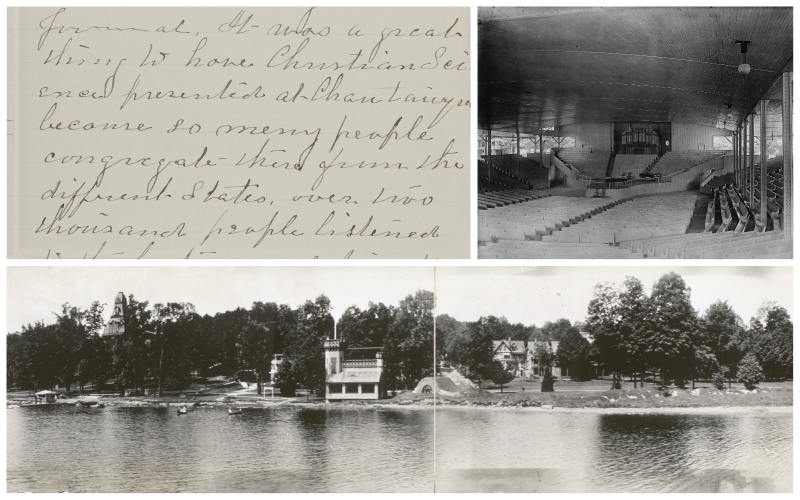 Journal, It was a great
thing to have Christian Sci
ence presented at Chautauqua
because so many people
congregate there from the
different States, over two
thousand people listened